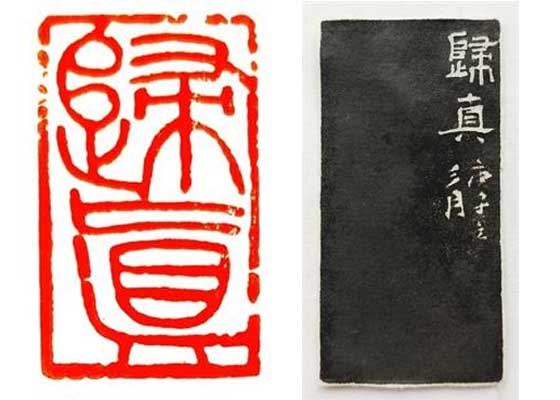 歸真
歸真
庚子
三月